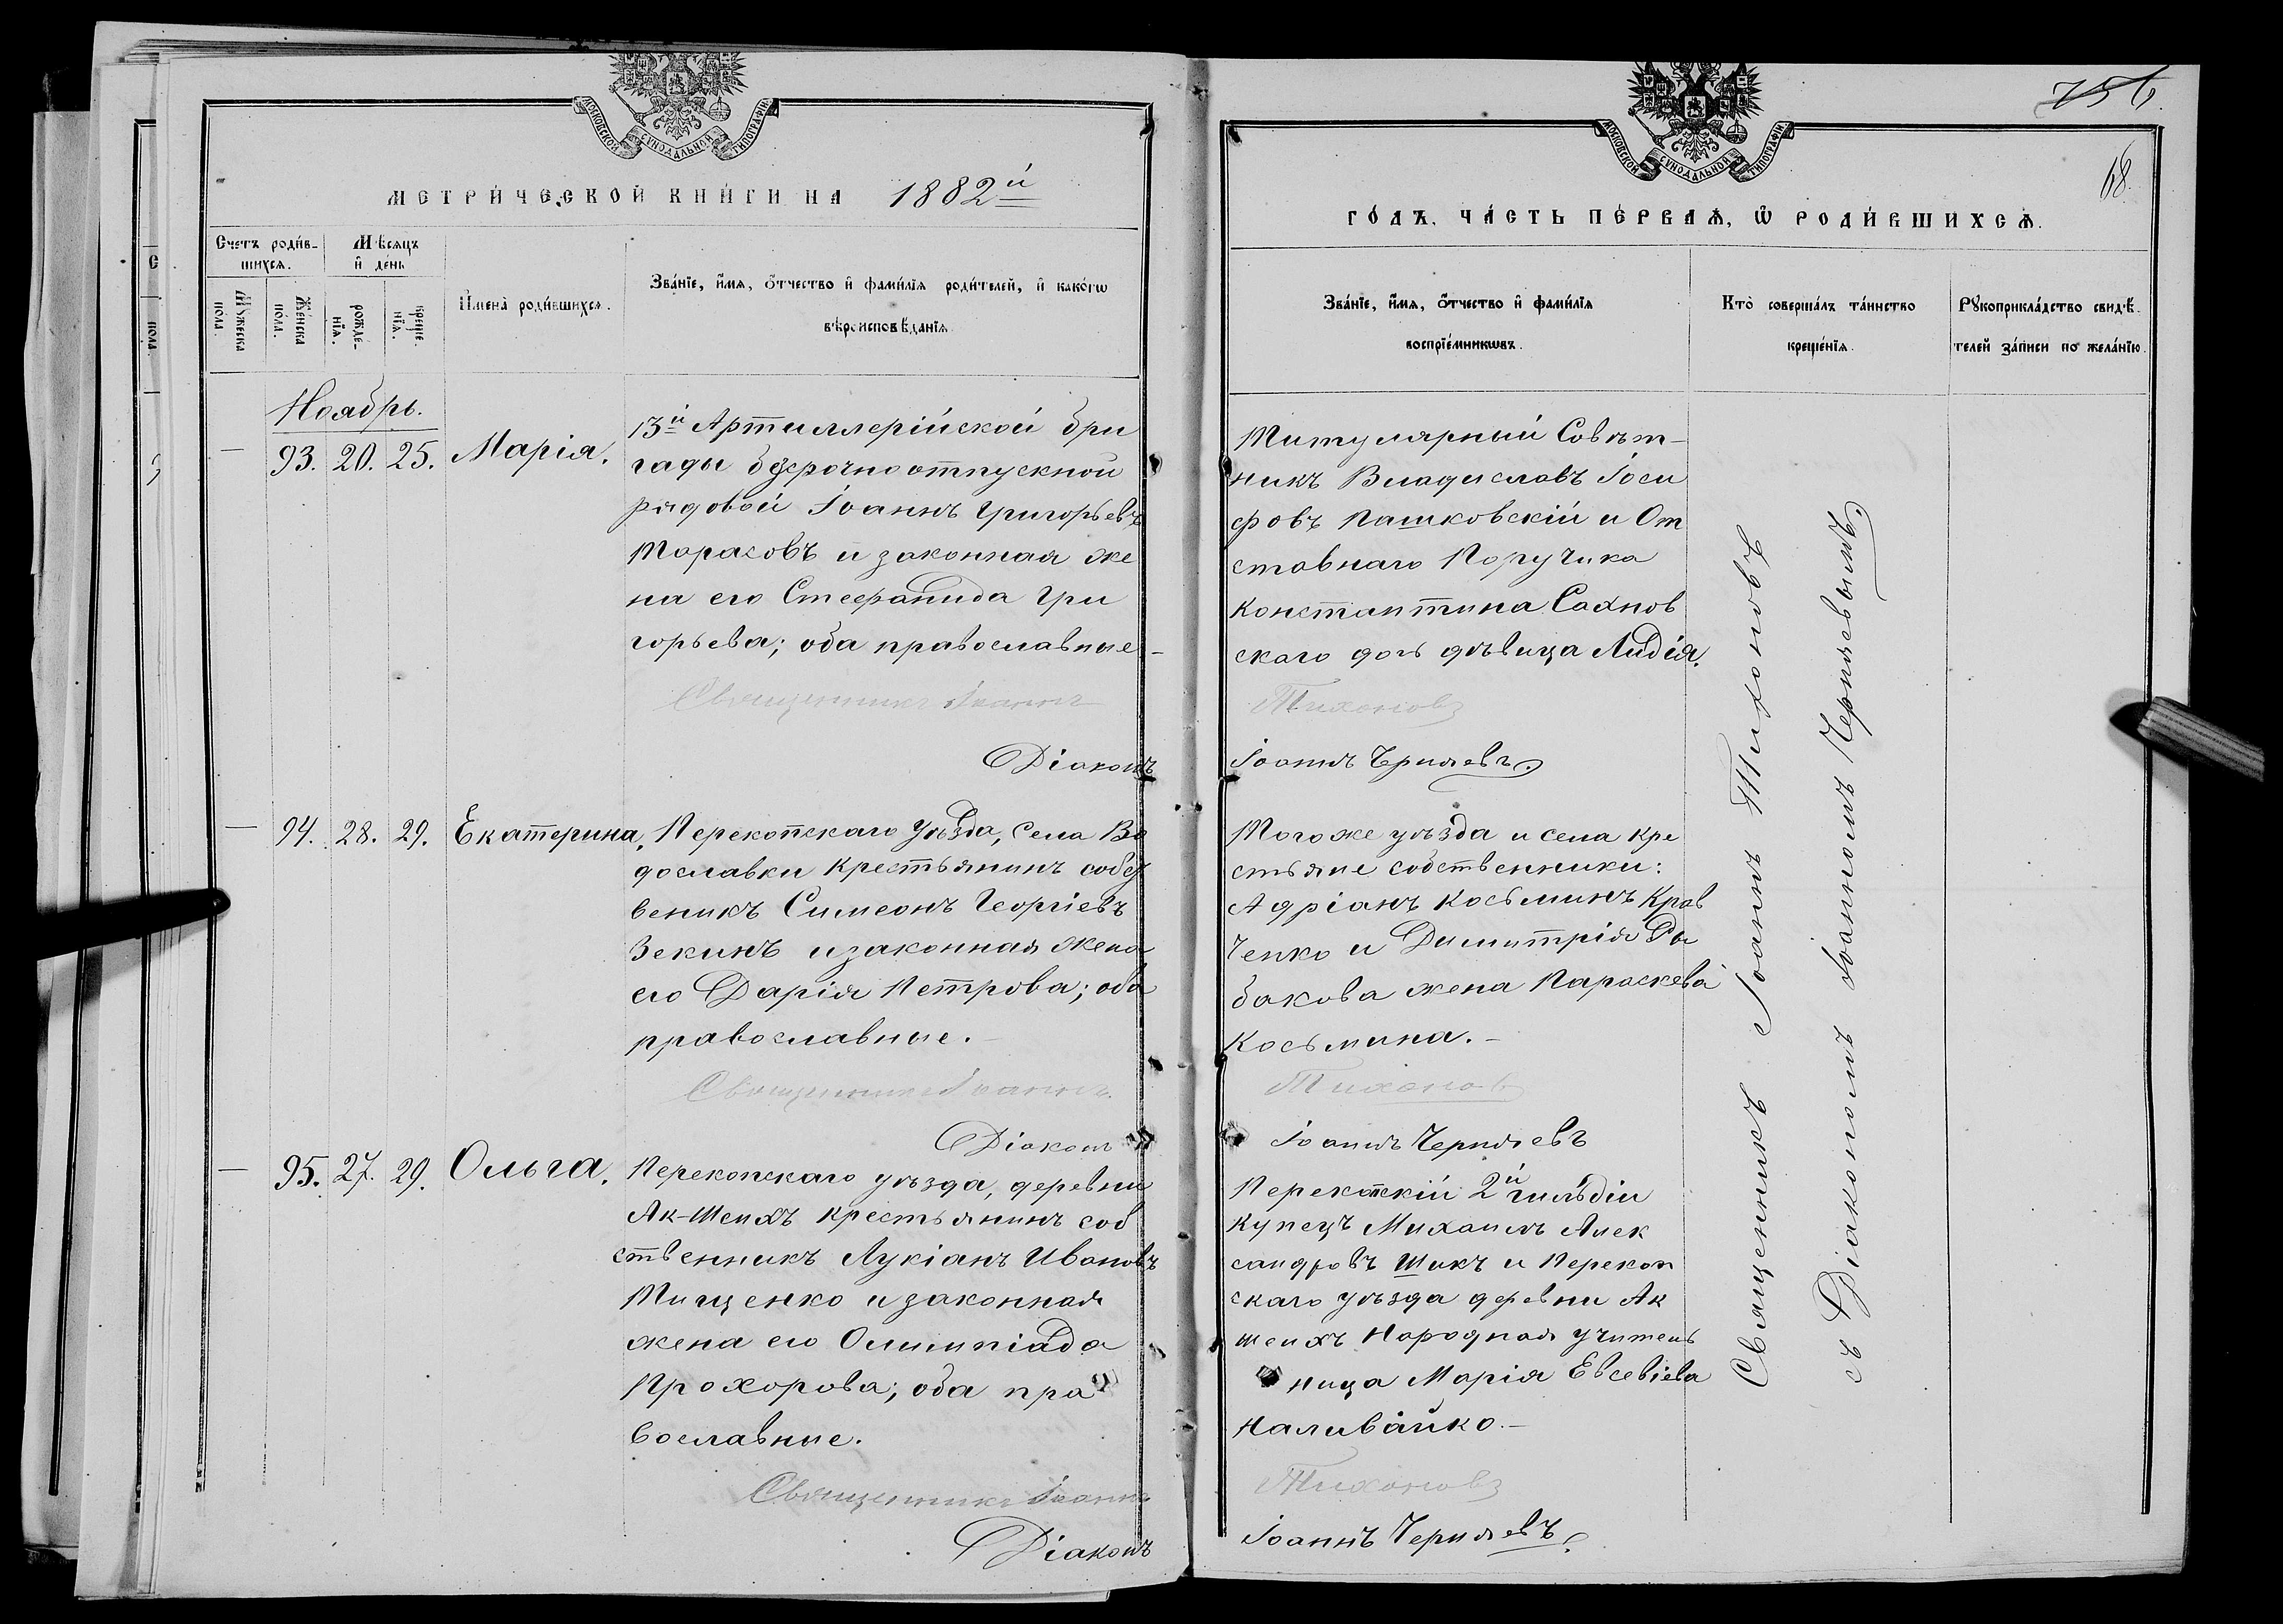 МОСКОВСКОЙ СѴНОДАЛЬНОЙ ТИПОГРАФІИ.
МЕТРИ́ЧЕСКОЙ КНИ́ГИ НА 1882й
Счетъ роди́в-
шихся.
Мѣсяцъ
и҆ де́нь
Мꙋ́жеска
по́ла.
Же́нска
по́ла.
рожде́-
нїя.
креще́-
нїя.
И҆мена̀ роди́вшихся.
Зва́нїе, и҆́мя, ѻ҆́тчество и҆ фами́лїя роди́телей, и҆ како́гѡ
вѣроисповѣ́данїя
Ноябрь.
— 93. 20. 25. Марія.
13й Артиллерійской бри
гады безсрочноотпускной
рядовой Іоаннъ Григорьевъ
Тарасовъ и законная же
на его Стефанида Гри
горьева; оба православные –
Священникъ Іоаннъ
Діаконъ
— 94. 28. 29. Екатерина,
Перекопскаго уѣзда, села Во
дославки крестьянинъ собст
веникъ Симеонъ Георгіевъ
Зекинъ и законная жена
его Дарія Петрова; оба
православные. –
Священникъ Іоаннъ
Діаконъ
— 95. 27. 29. Ольга.
Перекопскаго уѣзда, деревни
Ак-Шеихъ крестьянинъ соб
ственникъ Лукіанъ Ивановъ
Тищенко и законная
жена его Олимпіада
Прохорова; оба пра
вославные.
Священникъ Іоаннъ
Діаконъ
756
68.
МОСКОВСКОЙ СѴНОДАЛЬНОЙ ТИПОГРАФІИ.
ГО́ДЪ, ЧА́СТЬ ПЕ́РВАѦ, Ѡ҆ РОДИ́ВШИХСѦ.
Зва́нїе, и҆́мя, ѻ҆́тчество и҆ фами́лїя
воспрїе́мникѡвъ.
Кто̀ соверша́лъ та́инство
креще́нїя.
Рꙋкоприкла́дство свидѣ́-
телей за́писи по жела́нїю.
Титулярный Совѣт-
никъ Владиславъ Іоси
фовъ Пашковскій и От
ставнаго Поручика
Константина Сахнов
скаго дочь дѣвица Лидія.
Тихоновъ
Іоаннъ Черняевъ.
Тогоже уѣзда и села кре
стьяне собственники:
Адріанъ Косьминъ Крав
ченко и Димитрія Ры
бакова жена Параскева
Косьмина. –
Тихоновъ
Іоаннъ Черняевъ
Перекопскій 2й гильдіи
купецъ Михаилъ Алек
сандровъ Шикъ и Перекоп
скаго уѣзда деревни Ак
шеихъ Народная учитель
ница Марія Евсевіева
Наливайко. –
Тихоновъ
Іоаннъ Черняевъ.
Священникъ Іоаннъ Тихоновъ
съ Діакономъ Іоанномъ Черняевымъ